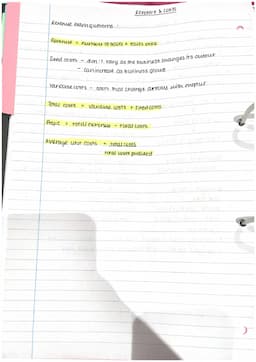 Revenue & Costs
Revenue
Revenue = number of sales x
Fixed costs - don't vary as the business changes its output
- can increase as business grows
Variable costs - costs that change directly with output
Total costs = variable costs + fixed costs
Profit = total revenue - total costs
Average unit costs = total costs
total units produced